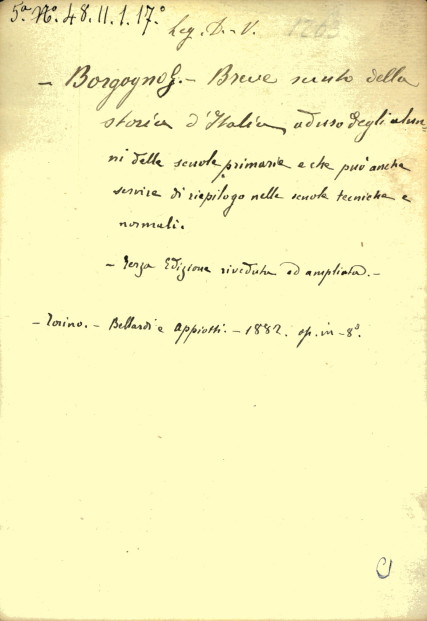 5ª Nº. 48. II. 1. 17.º
Leg. D. - V.
- Borgogno G. - Breve sunto della
storia d'Italia, ad uso degli alun-
ni delle scuole primarie e che può anche
servire di riepilogo nelle scuole tecniche e
normali.
- Terza Edizione riveduta ed ampliata. -
- Torino. - Bellardi e Appiotti. - 1882. op. in - 8º.